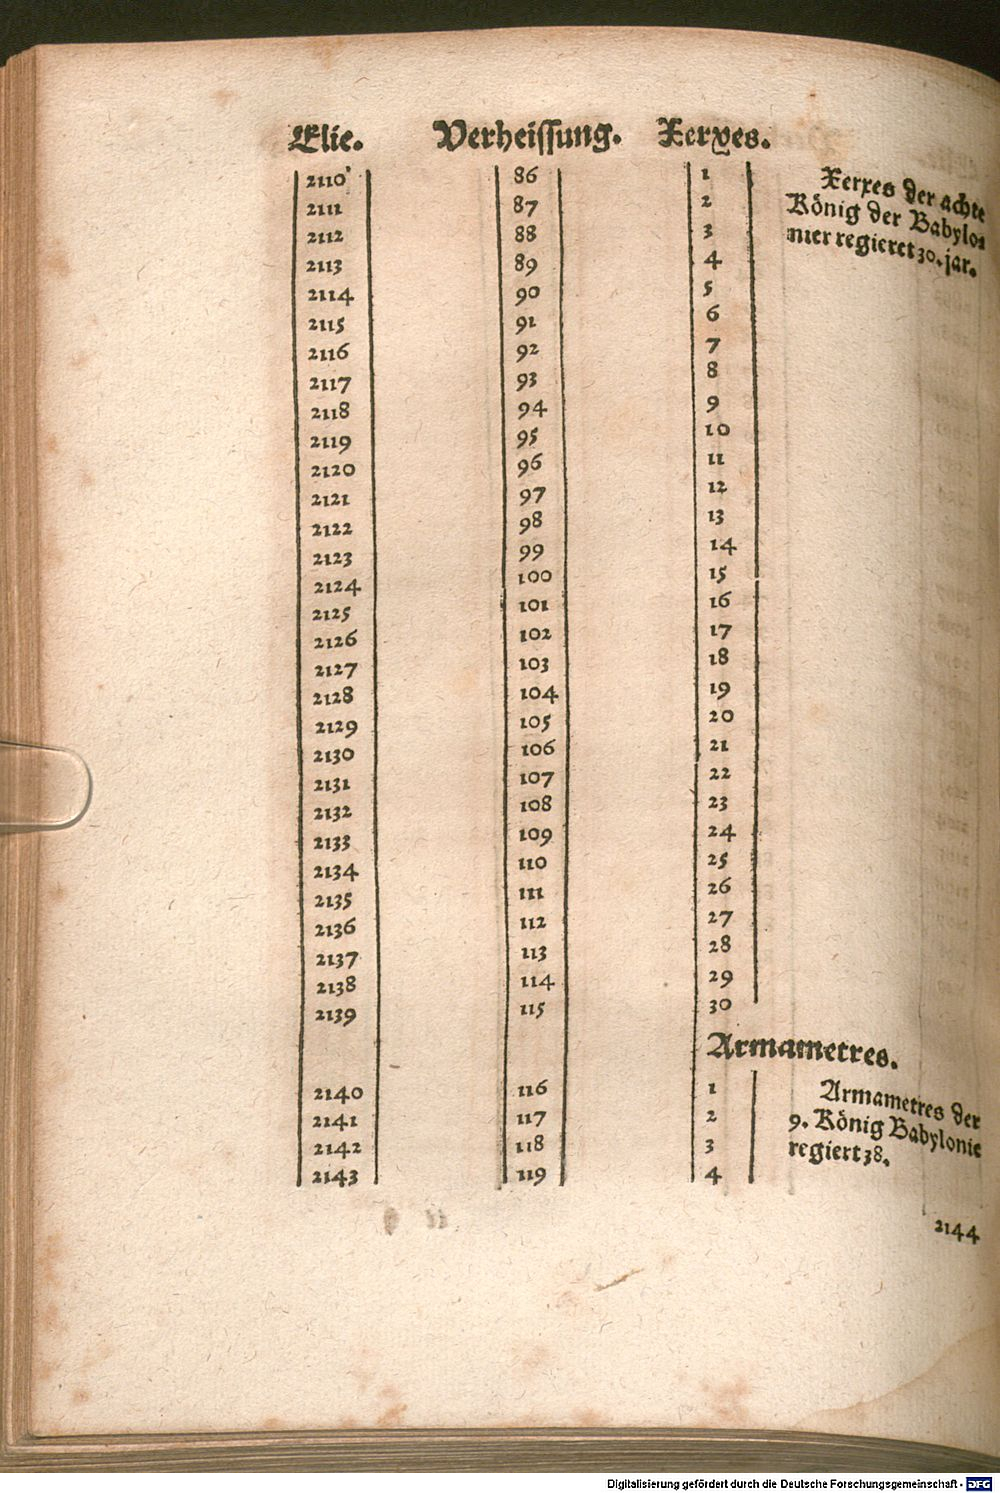 Elie. Verheissung. Xerxes.
2110 86 1
2111 87 2
2112 88 3
2113 89 4
2114 90 5
2115 91 6
2116 92 7
2117 93 8
2118 94 9
2119 95 10
2120 96 11
2121 97 12
2122 98 13
2123 99 14
2124 100 15
2125 101 16
2126 102 17
2127 103 18
2128 104 19
2129 105 20
2130 106 21
2131 107 22
2132 108 23
2133 109 24
2134 110 25
2135 111 26
2136 112 27
2137 113 28
2138 114 29
2139 115 30
Xerxes der achte
König der Babylo⸗
nier regieret 30. jar.
Armametres.
2140 116 1
2141 117 2
2142 118 3
2143 119 4
Armametres der
9. König Babylonie
regiert 38.
2144
Digitalisierung gefördert durch die Deutsche Forschungsgemeinschaft - DFG